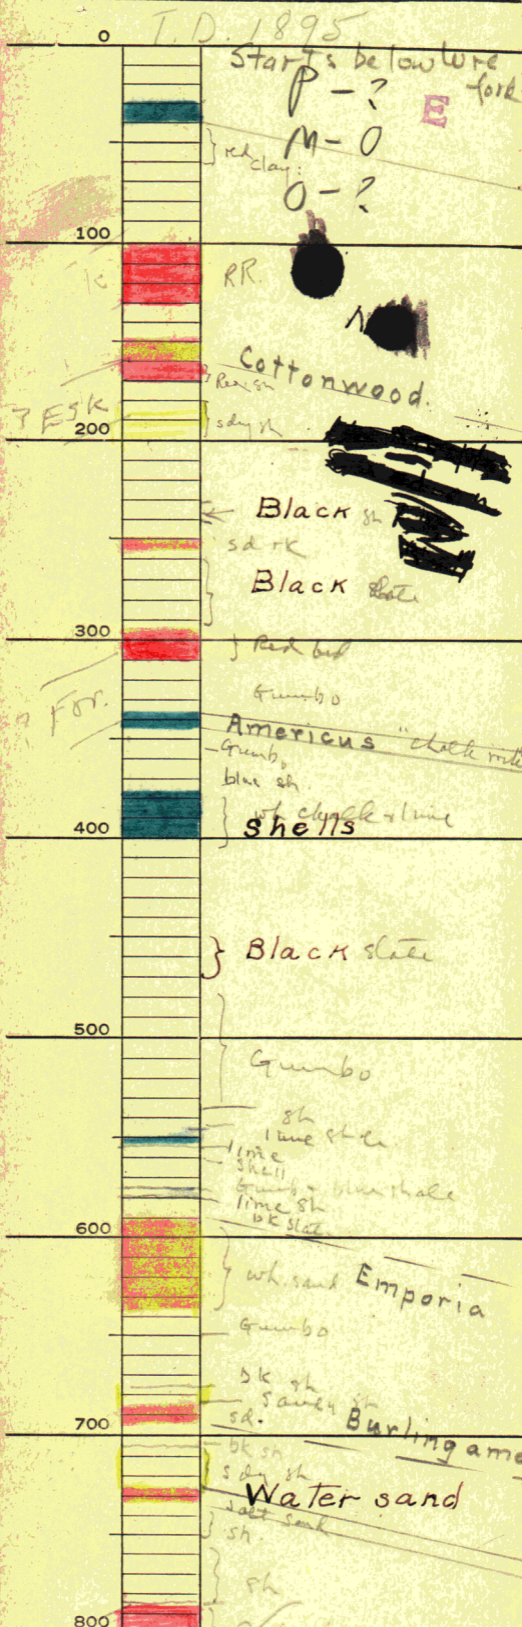 0
T.D. 1895
Starts below lure
fork
P - ?
E
M - O
red
clay.
O - ?
100
RR.
Cottonwood.
Red sh
? Esk
sdy sh
200
Black sh
sd rk
Black slate
300
Red bed
Gumbo
For.
Americus "chalk rock
Gumbo
blue sh.
wh chalk & lime
400
Shells
Black slate
500
Gumbo
sh
lime shale
lime
shell
Gumbo & blue shale
lime sh
bk slate
600
wh. sand Emporia
Gumbo
bk sh
sandy sh
sd.
Burlingame
700
bk sh
sdy sh
Water sand
salt sand
sh.
sh
800